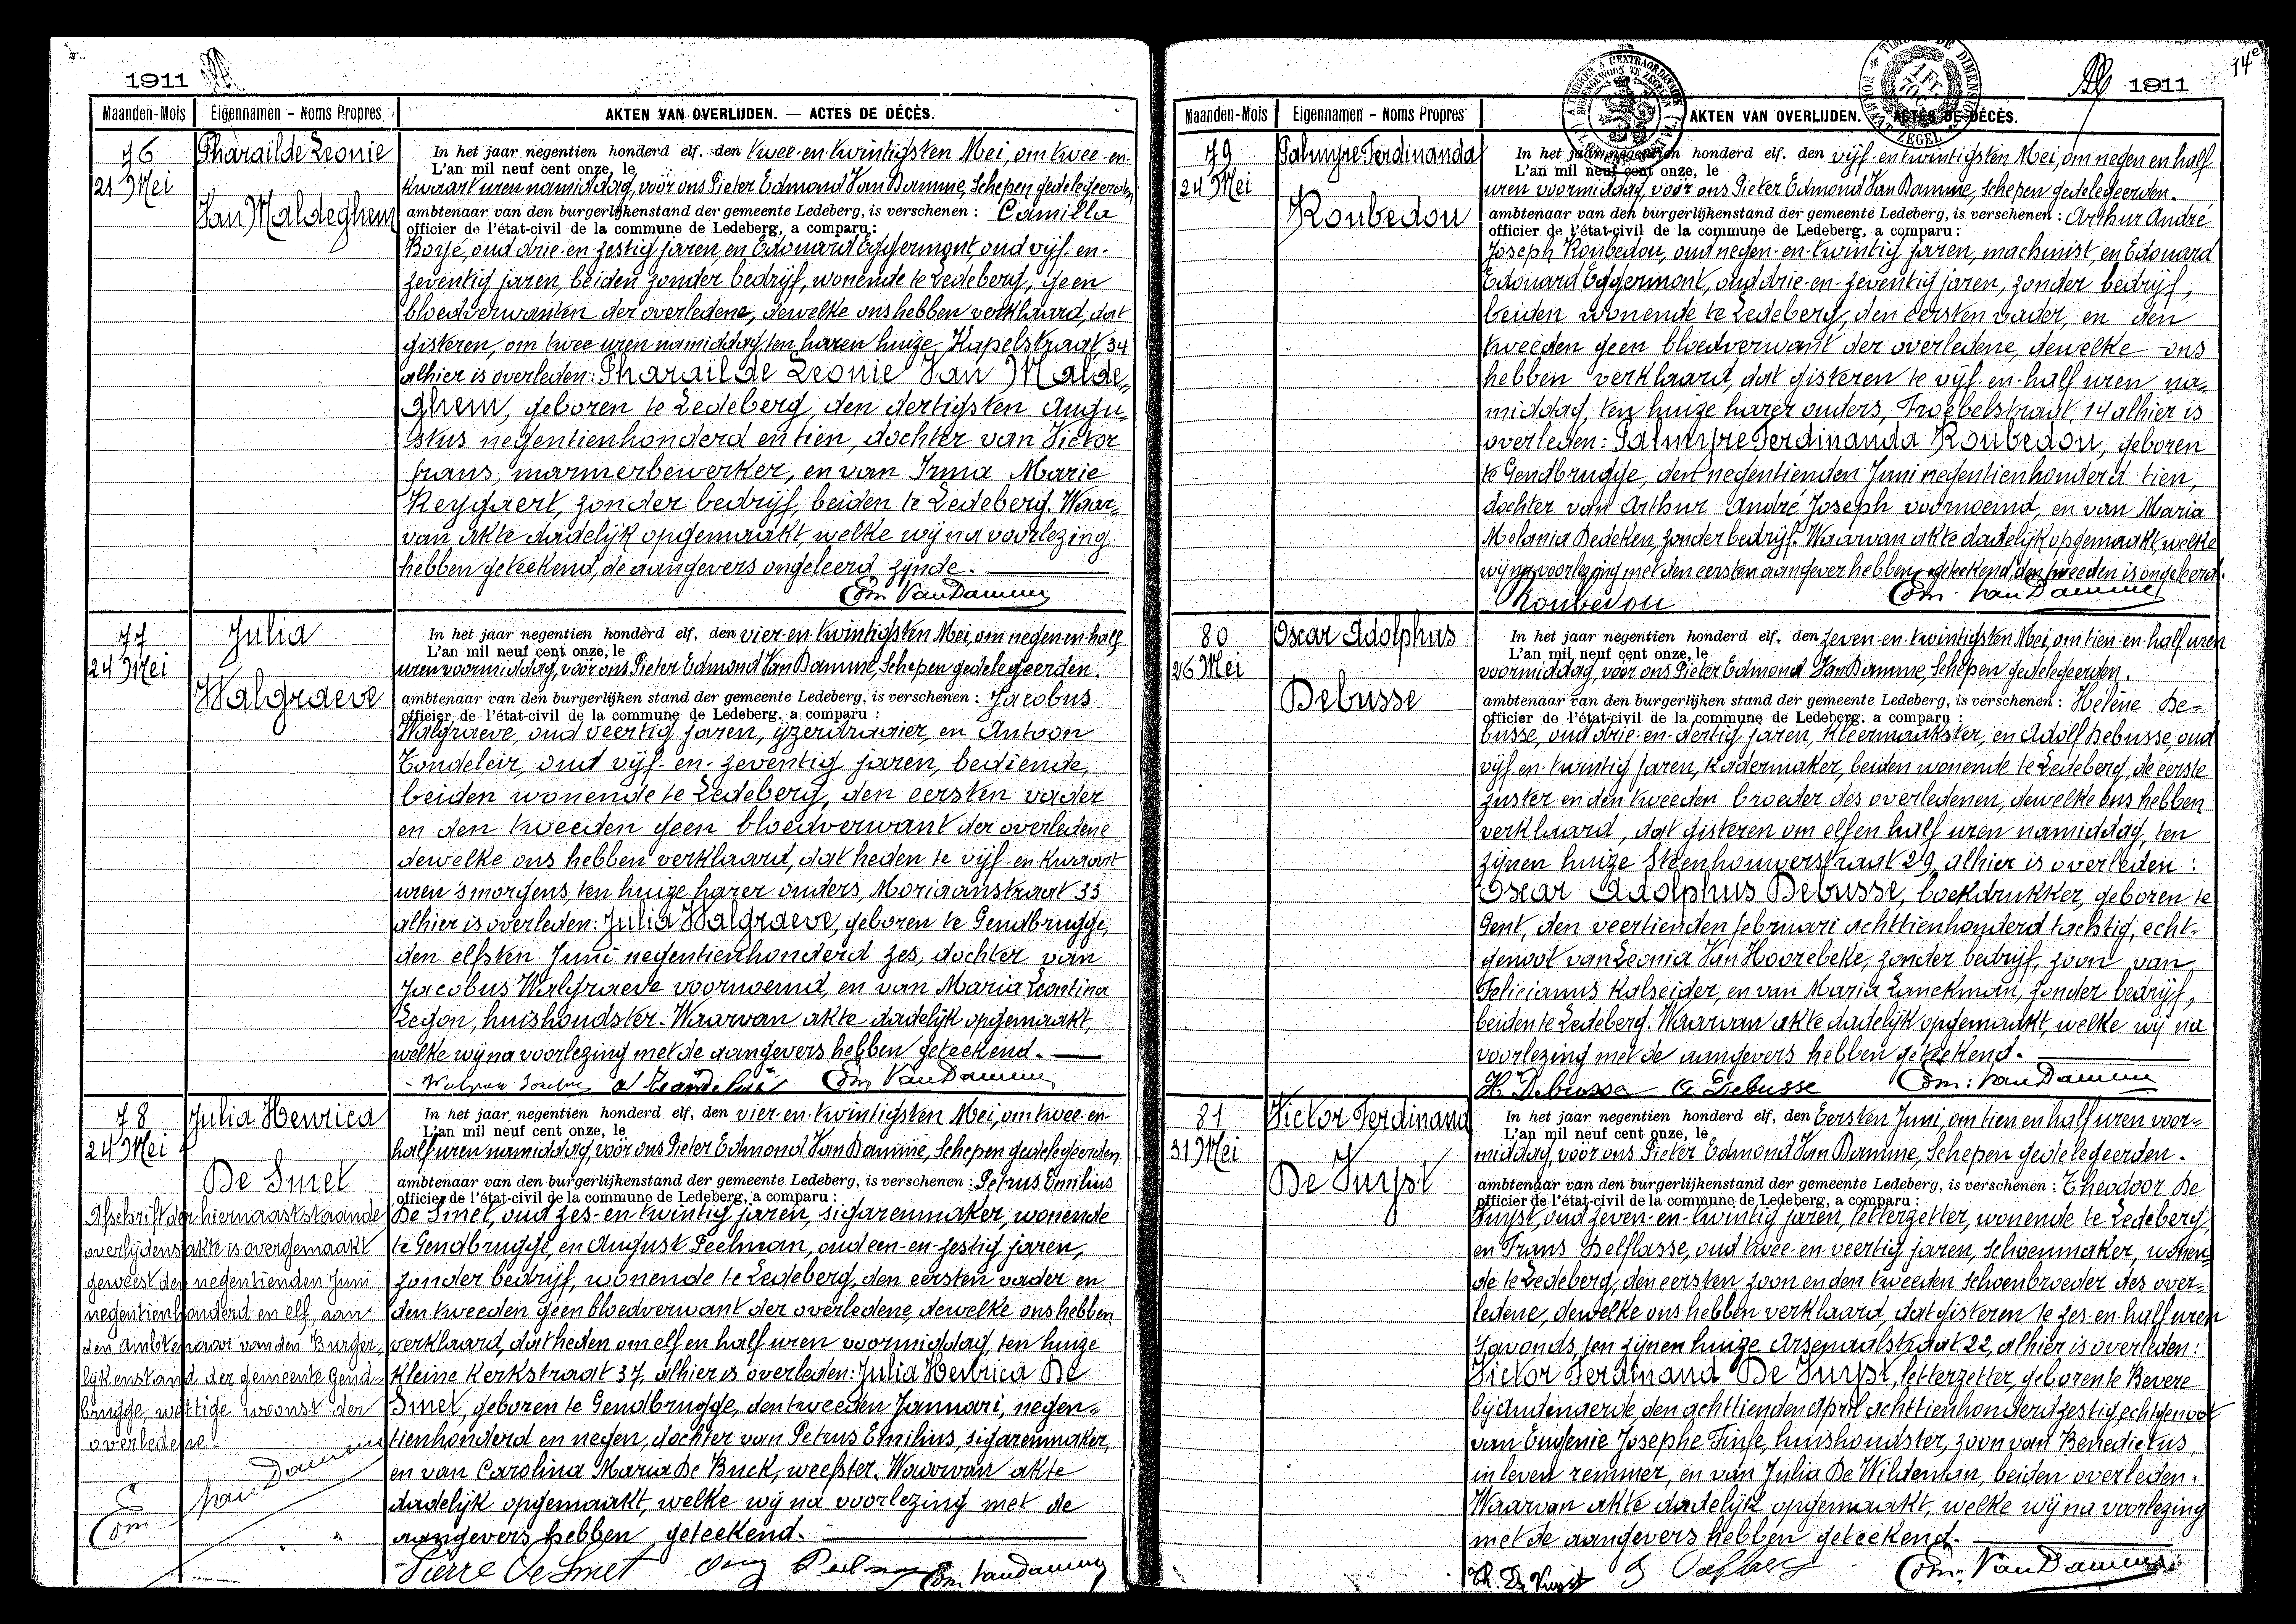 1911
Maanden-Mois Eigennamen - Noms Propres AKTEN VAN OVERLIJDEN. — ACTES DE DÉCÈS.
76
21 Mei
Pharaïlde Leonie
Van Maldeghem
In het jaar negentien honderd elf, den twee-en-twintigsten Mei, om twee-en-
L'an mil neuf cent onze, le
kwaart uren namiddag, voor ons Pieter Edmond Van Damme, Schepen gedelegeerden
ambtenaar van den burgerlijkenstand der gemeente Ledeberg, is verschenen : Camilla
officier de l'état-civil de la commune de Ledeberg, a comparu :
Borjé, oud drie-en-zestig jaren en Edouard Eggermont, oud vijf-en-
zeventig jaren, beiden zonder bedrijf, wonende te Ledeberg, geen
bloedverwanten der overledene, dewelke ons hebben verklaard, dat
gisteren, om twee uren namiddag, ten haren huize, Kapelstraat 34
alhier is overleden: Pharaïlde Leonie Van Malde„
ghem, geboren te Ledeberg den dertigsten Augu„
stus negentienhonderd en tien, dochter van Victor
frans, marmerbewerker, en van Irma Marie
Keygaert, zonder bedrijf, beiden te Ledeberg. Waar„
van akte dadelijk opgemaakt, welke wij na voorlezing
hebben geteekend, de aangevers ongeleerd zijnde.
Edm. Van Damme
77
24 Mei
Julia
Walgraeve
In het jaar negentien honderd elf, den vier-en-twintigsten Mei, om negen-en-half
L'an mil neuf cent onze, le
uren voormiddag, voor ons Pieter Edmond Van Damme, Schepen gedelegeerden.
ambtenaar van den burgerlijken stand der gemeente Ledeberg, is verschenen : Jacobus
officier de l'état-civil de la commune de Ledeberg, a comparu :
Walgraeve, oud veertig jaren, ijzerdraaier, en Antoon
Tondeleir, oud vijf-en-zeventig jaren, bediende,
beiden wonende te Ledeberg, den eersten vader
en den tweeden geen bloedverwant der overledene
dewelke ons hebben verklaard, dat heden te vijf-en-kwaart
uren 's morgens, ten huize harer ouders, Moriaanstraat 33
alhier is overleden: Julia Walgraeve, geboren te Gendbrugge,
den elfsten Juni negentienhonderd zes, dochter van
Jacobus Walgraeve voornoemd, en van Maria Leontina
Legon, huishoudster. Waarvan akte dadelijk opgemaakt,
welke wij na voorlezing met de aangevers hebben geteekend.
Edm Van Damme
78
24 Mei
Julia Henrica
De Smet
Afschrift der hiernaaststaande
overlijdensakte is overgemaakt
geweest den negentienden Juni
negentienhonderd en elf, aan
den Ambtenaar van den Burger„
lijkenstand der gemeente Gend„
brugge, wettige woonst der
overledene.
Edm Van Damme
In het jaar negentien honderd elf, den vier-en-twintigsten Mei, om twee-en-
L'an mil neuf cent onze, le
half uren namiddag, voor ons Pieter Edmond Van Damme, Schepen gedelegeerden
ambtenaar van den burgerlijkenstand der gemeente Ledeberg, is verschenen : Petrus Emilius
officier de l'état-civil de la commune de Ledeberg, a comparu :
De Smet, oud zes-en-twintig jaren, sigarenmaker, wonende
te Gendbrugge, en August Peelman, oud een-en-zestig jaren,
zonder bedrijf, wonende te Ledeberg, den eersten vader en
den tweeden geen bloedverwant der overledene, dewelke ons hebben
verklaard, dat heden om elf en half uren voormiddag, ten huize
Kleine Kerkstraat 37, alhier is overleden: Julia Henrica De
Smet, geboren te Gendbrugge, den tweeden Januari, negen„
tienhonderd en negen, dochter van Petrus Emilius, sigarenmaker,
en van Carolina Maria De Buck, weefster. Waarvan akte
dadelijk opgemaakt, welke wij na voorlezing met de
aangevers hebben geteekend.
Pierre De Smet Aug Peelman Edm Van Damme
14e
1911
Maanden-Mois Eigennamen - Noms Propres AKTEN VAN OVERLIJDEN. — ACTES DE DÉCÈS.
79
24 Mei
Palmyre Ferdinanda
Roubedou
In het jaar negentien honderd elf, den vijf-en-twintigsten Mei, om negen en half
L'an mil neuf cent onze, le
uren voormiddag, voor ons Pieter Edmond Van Damme, Schepen gedelegeerden.
ambtenaar van den burgerlijkenstand der gemeente Ledeberg, is verschenen : Arthur André
officier de l'état-civil de la commune de Ledeberg, a comparu :
Joseph Roubedou, oud negen-en-twintig jaren, machinist, en Edouard
Edouard Eggermont, oud drie-en-zeventig jaren, zonder bedrijf,
beiden wonende te Ledeberg, den eersten vader, en den
tweeden geen bloedverwant der overledene, dewelke ons
hebben verklaard, dat gisteren te vijf-en-half uren na„
middag, ten huize harer ouders, Froebelstraat, 14 alhier is
overleden: Palmyre Ferdinanda Roubedou, geboren
te Gendbrugge, den negentienden Juni negentienhonderd tien,
dochter van Arthur André Joseph voornoemd, en van Maria
Melania Dedeken, zonder bedrijf. Waarvan akte dadelijk opgemaakt, welke
wij na voorlezing met den eersten aangever hebben geteekend, den tweeden is ongeleerd.
Roubedou Edm. Van Damme
80
26 Mei
Oscar Adolphus
Debusse
In het jaar negentien honderd elf, den zeven-en-twintigsten Mei, om tien-en-half uren
L'an mil neuf cent onze, le
voormiddag, voor ons Pieter Edmond Van Damme, Schepen gedelegeerden.
ambtenaar van den burgerlijken stand der gemeente Ledeberg, is verschenen : Hélène De-
officier de l'état-civil de la commune de Ledeberg, a comparu :
busse, oud drie-en-dertig jaren, kleermaakster, en Adolf Debusse, oud
vijf-en-twintig jaren, kadermaker, beiden wonende te Ledeberg, de eerste
zuster en den tweeden broeder des overledenen, dewelke ons hebben
verklaard, dat gisteren om elf en half uren namiddag, ten
zijnen huize Steenhouwerstraat 29, alhier is overleden :
Oscar Adolphus Debusse, boekdrukker, geboren te
Gent, den veertienden februari achttienhonderd tachtig, echt-
genoot van Leonia Van Hoorebeke, zonder bedrijf, zoon van
Felicianus Kalseider, en van Maria Lanckman, zonder bedrijf,
beiden te Ledeberg. Waarvan akte dadelijk opgemaakt, welke wij na
voorlezing met de aangevers hebben geteekend.
H. Debusse A. Debusse Edm. Van Damme
81
31 Mei
Victor Ferdinand
De Vuyst
In het jaar negentien honderd elf, den Eersten Juni, om tien en half uren voor-
L'an mil neuf cent onze, le
middag, voor ons Pieter Edmond Van Damme, Schepen gedelegeerden.
ambtenaar van den burgerlijkenstand der gemeente Ledeberg, is verschenen : Theodoor De
officier de l'état-civil de la commune de Ledeberg, a comparu :
Vuyst, oud zeven-en-twintig jaren, letterzetter, wonende te Ledeberg,
en Frans Delflasse, oud twee-en-veertig jaren, Schoenmaker, wonen„
de te Ledeberg, den eersten zoon en den tweeden Schoonbroeder des over„
ledene, dewelke ons hebben verklaard, dat gisteren te zes-en-half uren
's avonds, ten zijnen huize Arsenaalstraat 22, alhier is overleden:
Victor Ferdinand De Vuyst, letterzetter, geboren te Bevere
bij Audenaerde, den achttienden April achttienhonderd zestig, echtgenoot
van Eugenie Josephe Finse, huishoudster, zoon van Benedictus,
in leven remmer, en van Julia De Wildeman, beiden overleden.
Waarvan akte dadelijk opgemaakt, welke wij na voorlezing
met de aangevers hebben geteekend.
Th. De Vuyst Edm. Van Damme